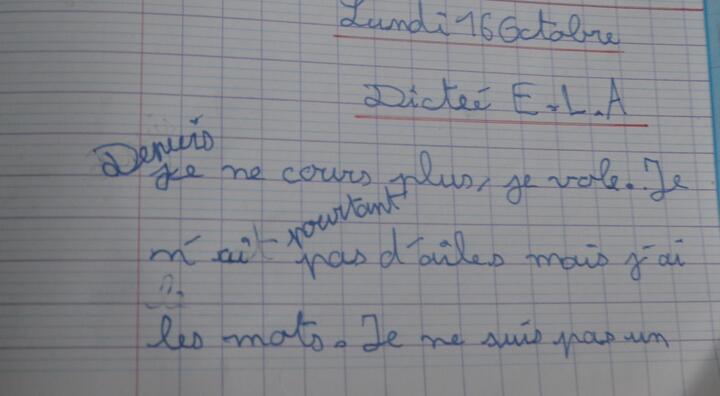 Lundi 16 Octobre
Dicteé E.L.A
Depuis
je ne cours plus, je vole. Je
pourtant
m'ait pas d'aîles mais j'ai
les mots. Je ne suis pas un